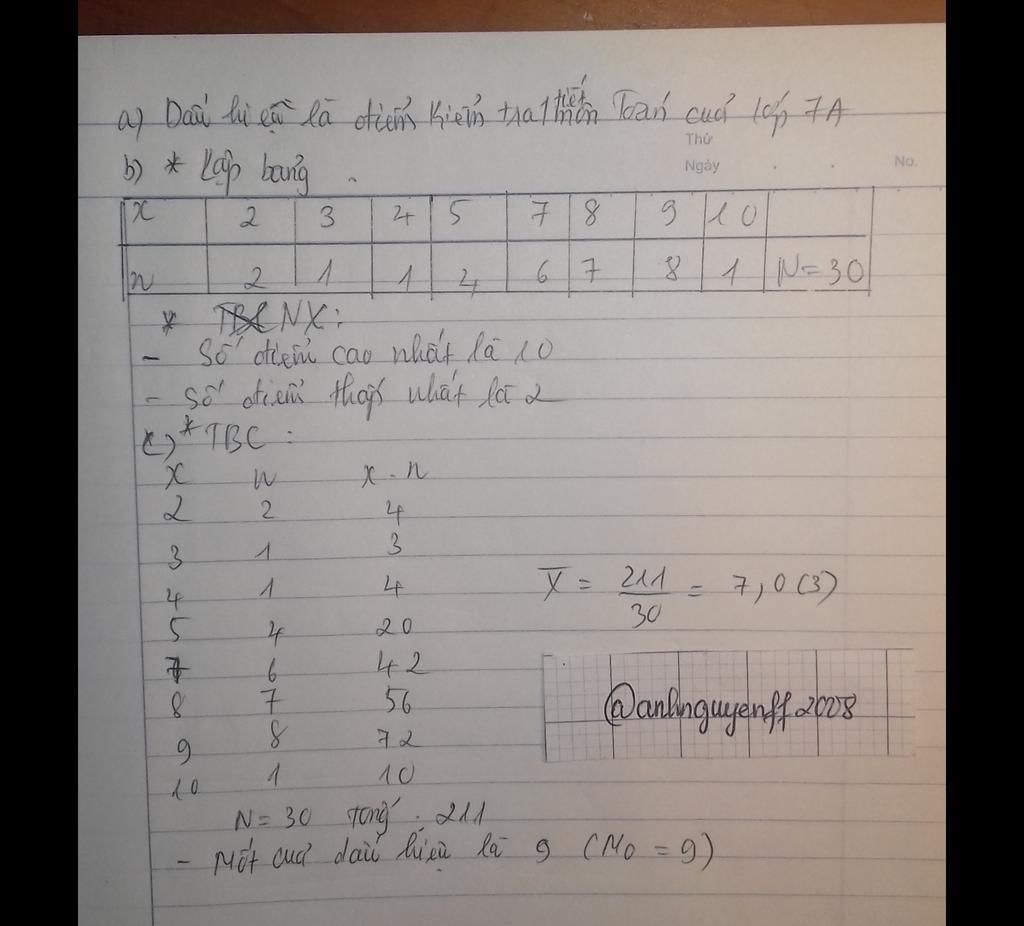 a) Dấu hiệu là điểm kiểm tra 1 tiết môn Toán của lớp 7A
Thứ
Ngày . . No.
b) * Lập bảng .
x 2 3 4 5 7 8 9 10
n 2 1 1 4 6 7 8 1 N=30
* NX:
- Số điểm cao nhất là 10
- Số điểm thấp nhất là 2
c) * TBC :
x n x.n
2 2 4
3 1 3
4 1 4
X̅ = 211/30 = 7,0(3)
5 4 20
7 6 42
8 7 56
@anhnguyenff2008
9 8 72
10 1 10
N=30 tổng : 211
- Mốt của dấu hiệu là 9 (Mo = 9)